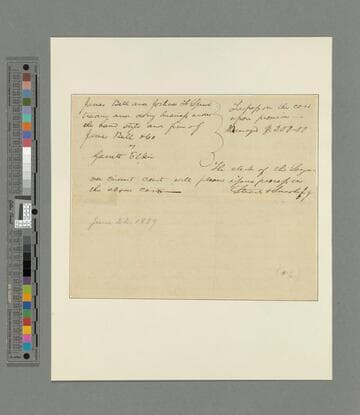 James Bell and Joshua F Speed
trading and doing business under
the name style and firm of
James Bell & Co
vs
Garrett Elkin
Trespass on the case
upon promises
Damages $ 200.00
The clerk of the Sangam
on circuit court will please issue process in
the above case
Stuart & Lincoln p q
June 1839